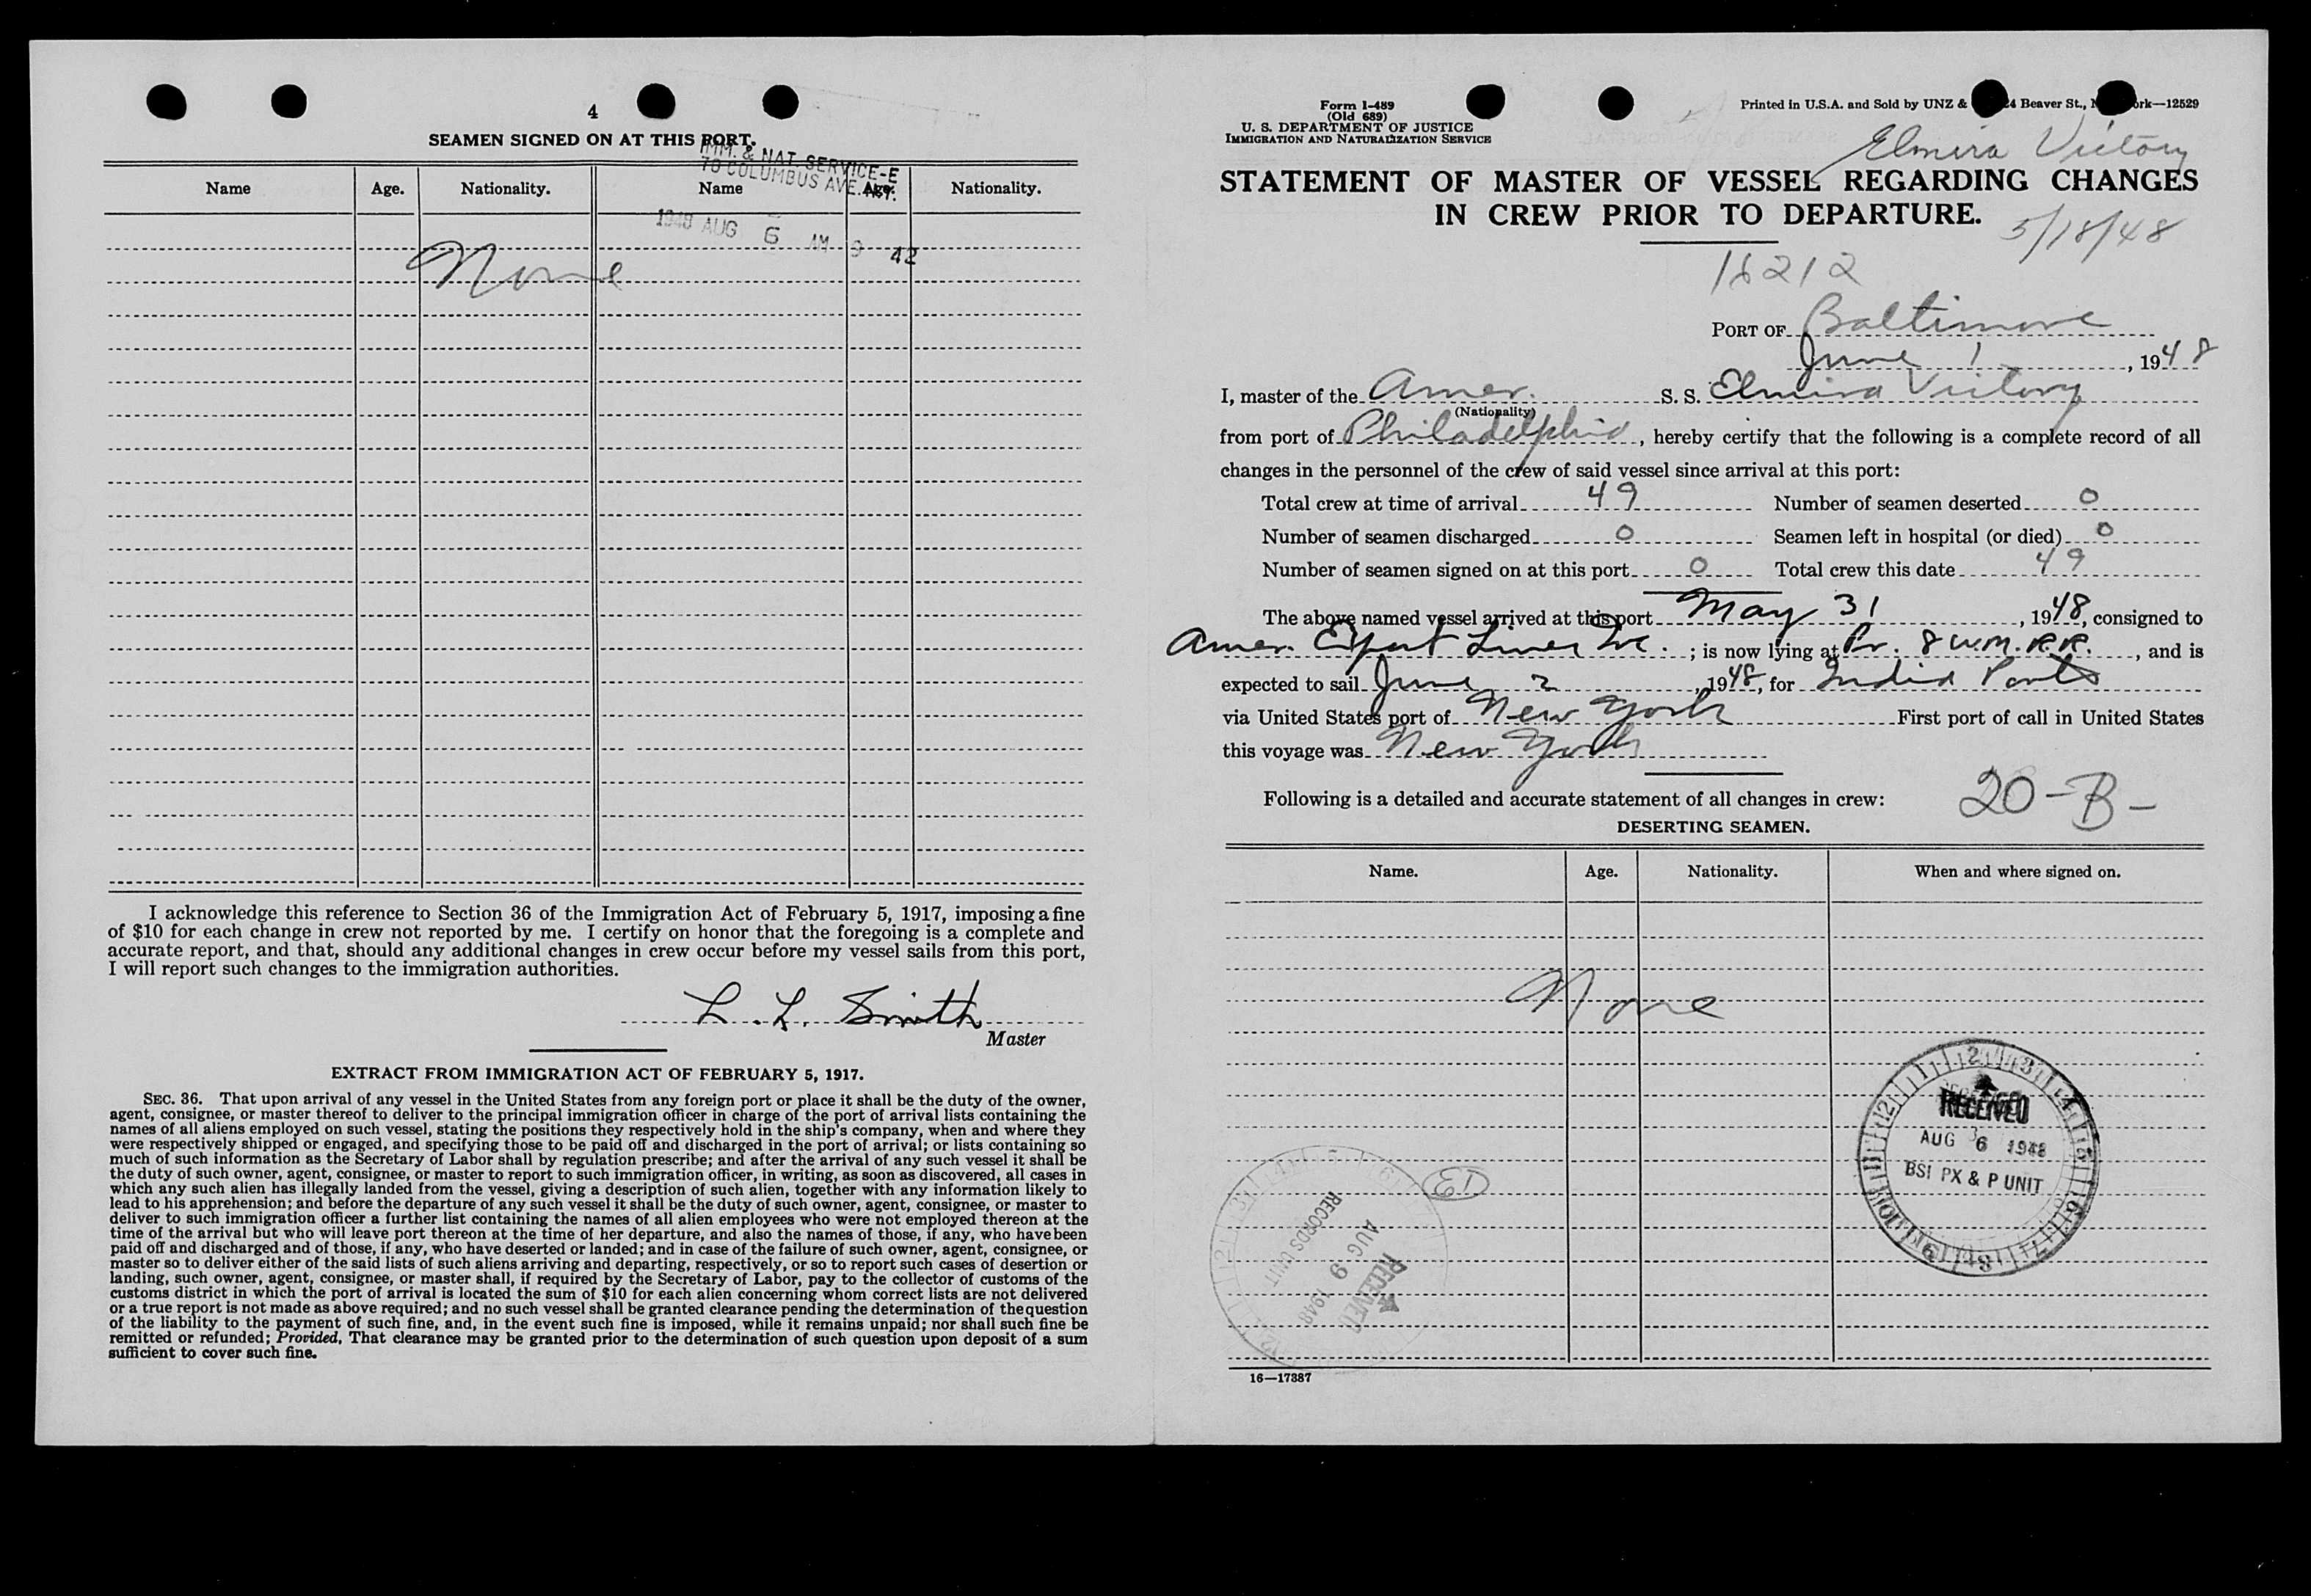 4
SEAMEN SIGNED ON AT THIS PORT.
IMM. & NAT. SERVICE-E
70 COLUMBUS AVE.
Name Age. Nationality. Name Age. Nationality.
1948 AUG 6 AM 9 42
None
I acknowledge this reference to Section 36 of the Immigration Act of February 5, 1917, imposing a fine
of $10 for each change in crew not reported by me. I certify on honor that the foregoing is a complete and
accurate report, and that, should any additional changes in crew occur before my vessel sails from this port,
I will report such changes to the immigration authorities.
L. L. Smith
Master
EXTRACT FROM IMMIGRATION ACT OF FEBRUARY 5, 1917.
SEC. 36. That upon arrival of any vessel in the United States from any foreign port or place it shall be the duty of the owner,
agent, consignee, or master thereof to deliver to the principal immigration officer in charge of the port of arrival lists containing the
names of all aliens employed on such vessel, stating the positions they respectively hold in the ship's company, when and where they
were respectively shipped or engaged, and specifying those to be paid off and discharged in the port of arrival; or lists containing so
much of such information as the Secretary of Labor shall by regulation prescribe; and after the arrival of any such vessel it shall be
the duty of such owner, agent, consignee, or master to report to such immigration officer, in writing, as soon as discovered, all cases in
which any such alien has illegally landed from the vessel, giving a description of such alien, together with any information likely to
lead to his apprehension; and before the departure of any such vessel it shall be the duty of such owner, agent, consignee, or master to
deliver to such immigration officer a further list containing the names of all alien employees who were not employed thereon at the
time of the arrival but who will leave port thereon at the time of her departure, and also the names of those, if any, who have been
paid off and discharged and of those, if any, who have deserted or landed; and in case of the failure of such owner, agent, consignee, or
master so to deliver either of the said lists of such aliens arriving and departing, respectively, or so to report such cases of desertion or
landing, such owner, agent, consignee, or master shall, if required by the Secretary of Labor, pay to the collector of customs of the
customs district in which the port of arrival is located the sum of $10 for each alien concerning whom correct lists are not delivered
or a true report is not made as above required; and no such vessel shall be granted clearance pending the determination of the question
of the liability to the payment of such fine, and, in the event such fine is imposed, while it remains unpaid; nor shall such fine be
remitted or refunded; Provided, That clearance may be granted prior to the determination of such question upon deposit of a sum
sufficient to cover such fine.
Form I-489
(Old 689)
U. S. DEPARTMENT OF JUSTICE
IMMIGRATION AND NATURALIZATION SERVICE
Printed in U.S.A. and Sold by UNZ & Beaver St., 12529
Elmira Victory
STATEMENT OF MASTER OF VESSEL REGARDING CHANGES
IN CREW PRIOR TO DEPARTURE.
5/18/48
16212
PORT OF Baltimore
June 1, 1948
I, master of the Amer. S. S. Elmira Victory
(Nationality)
from port of Philadelphia, hereby certify that the following is a complete record of all
changes in the personnel of the crew of said vessel since arrival at this port:
Total crew at time of arrival 49 Number of seamen deserted 0
Number of seamen discharged 0 Seamen left in hospital (or died) 0
Number of seamen signed on at this port 0 Total crew this date 49
The above named vessel arrived at this port May 31, 1948, consigned to
Amer. Export Lines Inc.; is now lying at Pr. 8 W.M.R.R., and is
expected to sail June 2, 1948, for India Ports
via United States port of New York First port of call in United States
this voyage was New York
Following is a detailed and accurate statement of all changes in crew:
20-B-
DESERTING SEAMEN.
Name. Age. Nationality. When and where signed on.
None
RECEIVED
AUG 6 1948
BSI PX & P UNIT
RECEIVED
AUG 9 1948
RECORDS UNIT
16—17887